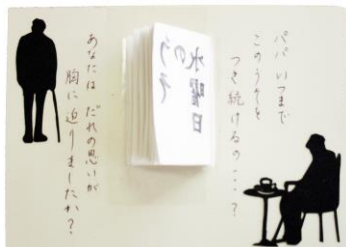 パパ いつまで
このうそを
つき続けるの・・・・?
水曜日
のうそ
あなたは だれの思いが
胸に迫りましたか?